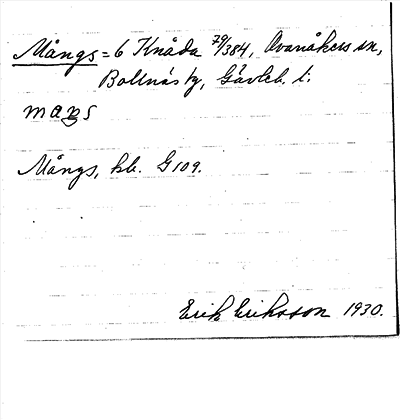 Mångs = 6 Knåda 79/384, Ovanåkers sn,
Bollnäs tg, Gävleb. l.
maŋs
Mångs, kb. G 109.
Erik Eriksson 1930.